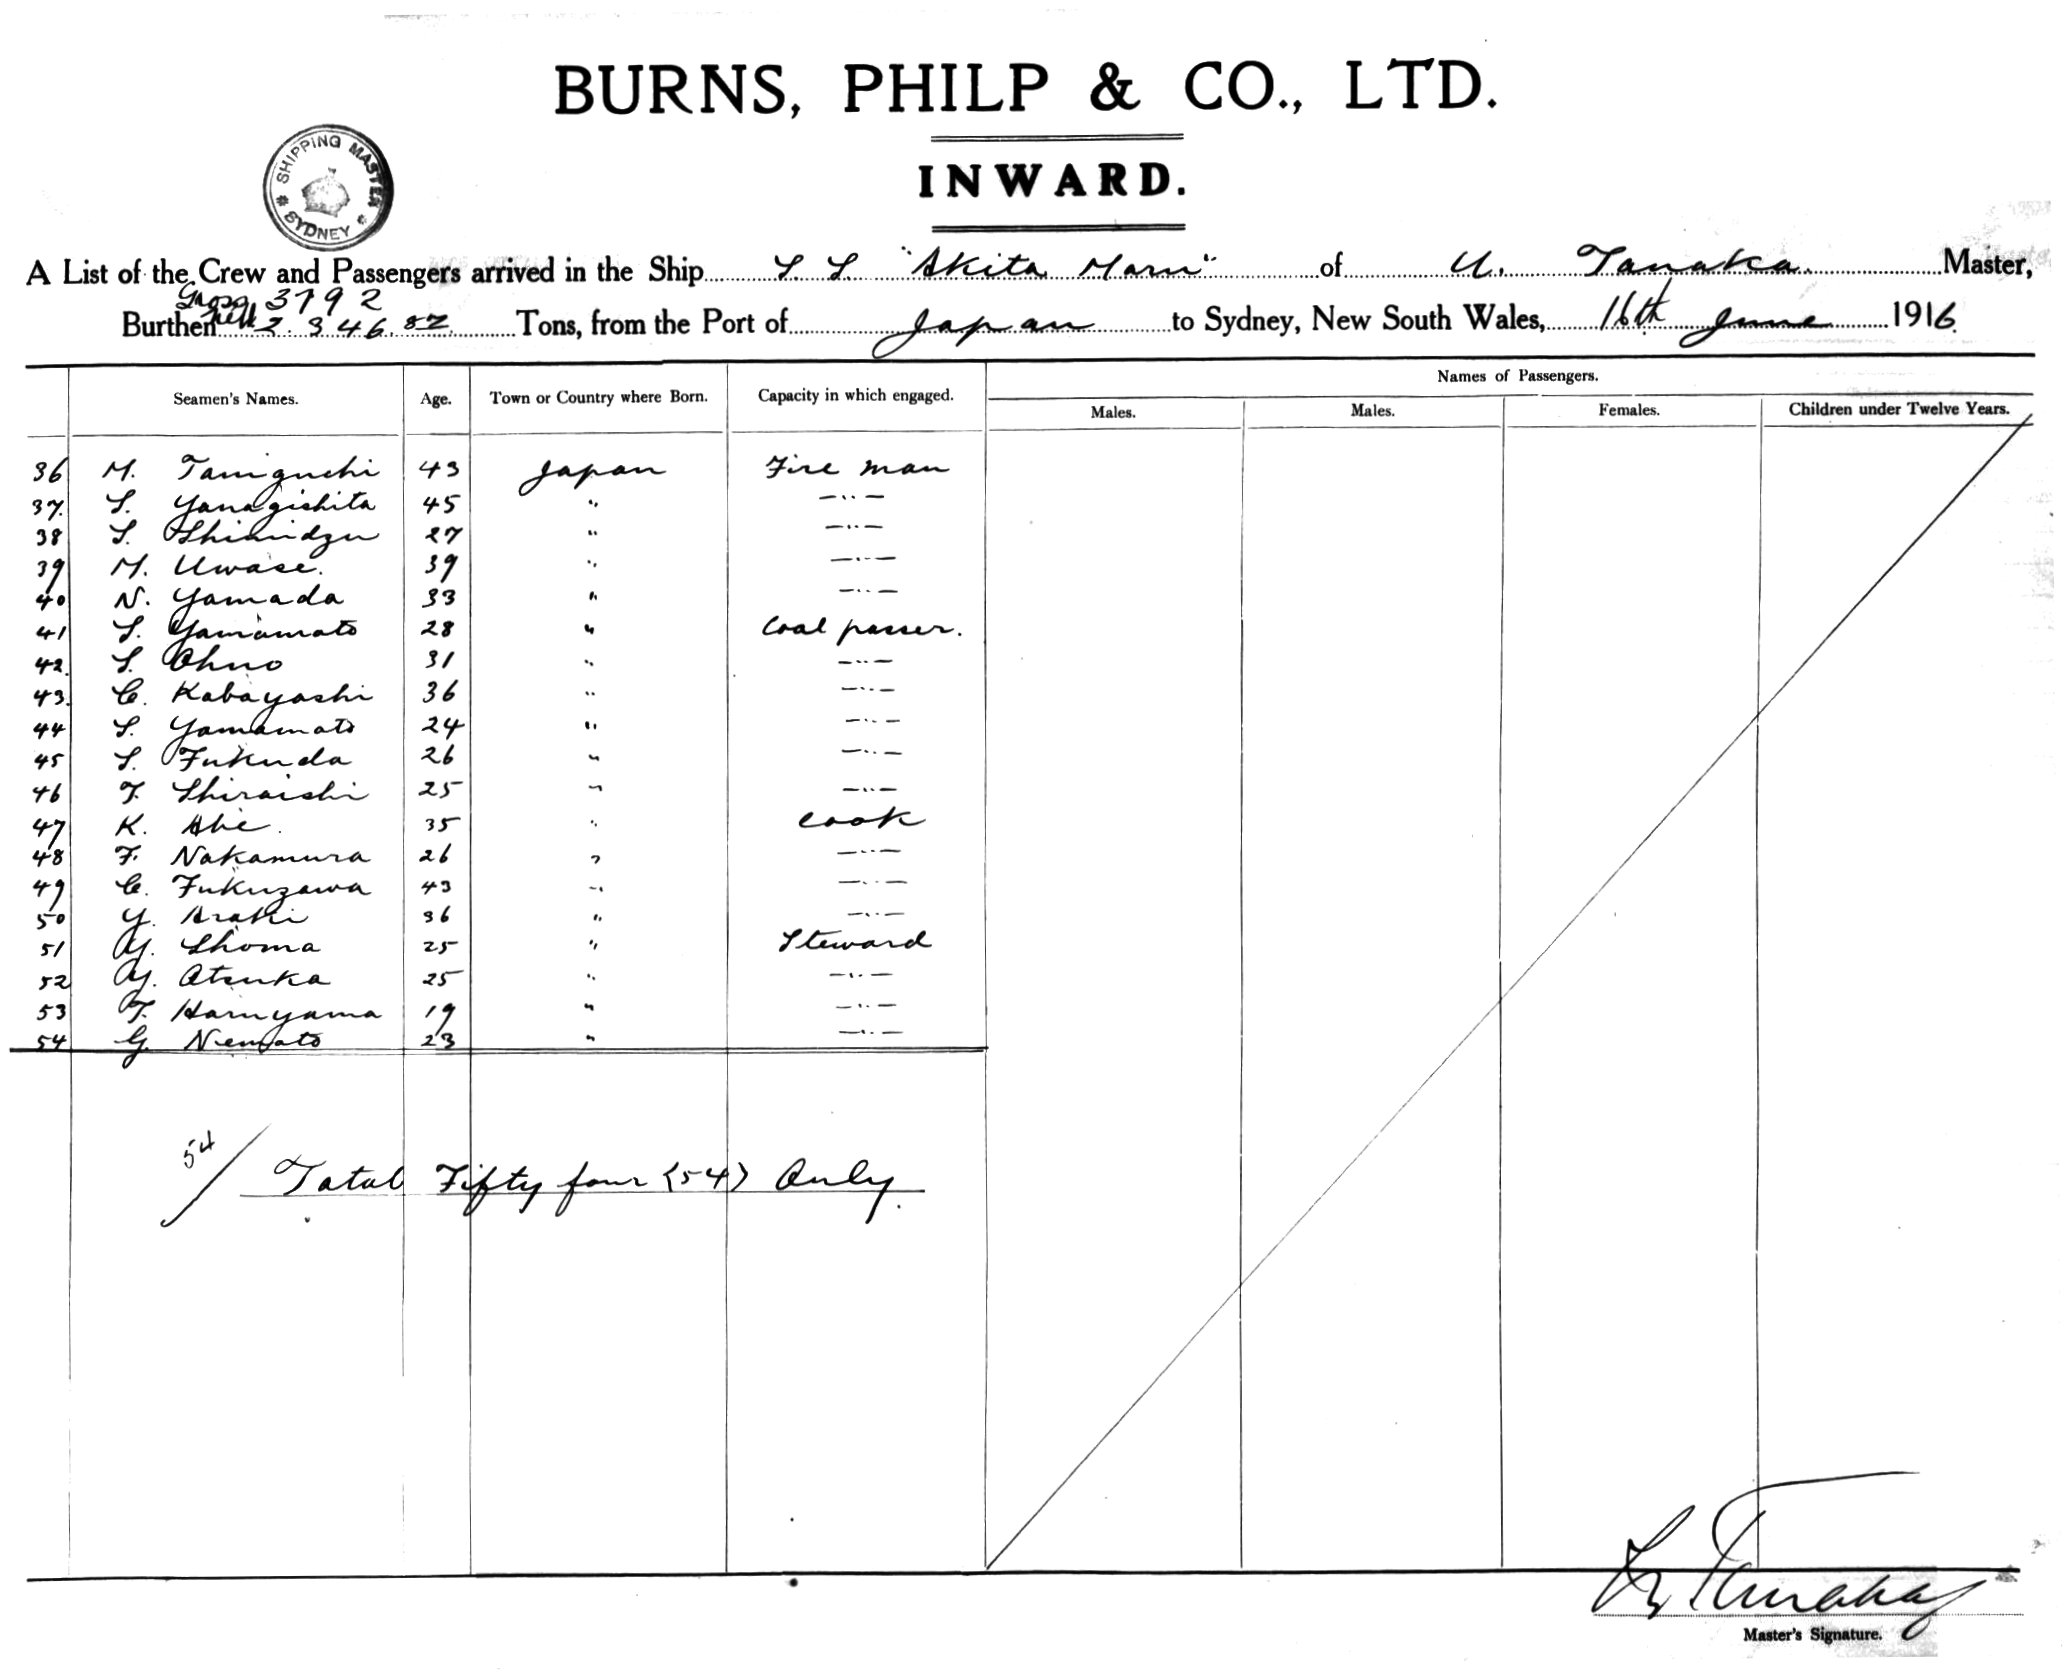 BURNS, PHILP & CO., LTD.
INWARD.
SHIPPING MASTER
SYDNEY
A List of the Crew and Passengers arrived in the Ship S. S. "Akita Maru" of U. Tanaka. Master,
Gross 3792
Burthen Nett 2.346.82 Tons, from the Port of Japan to Sydney, New South Wales, 16th June 1916.
Names of Passengers.
Seamen's Names. Age. Town or Country where Born. Capacity in which engaged. Males. Males. Females. Children under Twelve Years.
36 M. Taniguchi 43 Japan Fire man
37. S. Yanagishita 45 " —"—
38 S. Shimidzu 27 " —"—
39 M. Uwase. 39 " —"—
40 N. Yamada 33 " —"—
41 S. Yamamoto 28 " Coal passer.
42. S. Ohno 31 " —"—
43. C. Kobayashi 36 " —"—
44 S. Yamamoto 24 " —"—
45 S. Fukuda 26 " —"—
46 T. Shiraishi 25 " —"—
47 K. Abe. 35 " Cook
48 F. Nakamura 26 " —"—
49 C. Fukuzawa 43 " —"—
50 Y. Araki 36 " —"—
51 Y. Shoma 25 " Steward
52 Y. Otsuka 25 " —"—
53 T. Haruyama 19 " —"—
54 G. Nemoto 23 " —"—
54
Total Fifty four (54) Only.
Tanaka
Master's Signature.